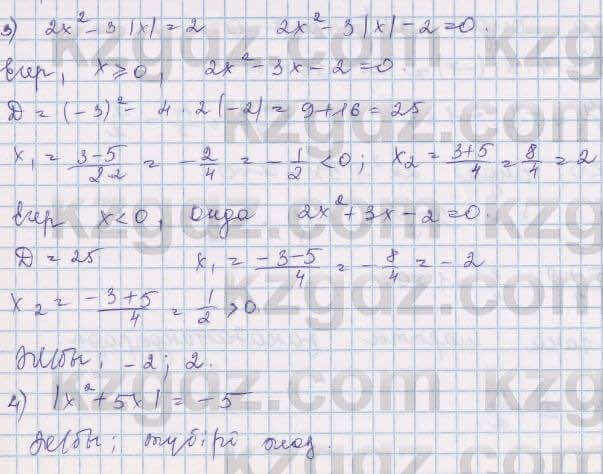 3) 2x² - 3|x| = 2    2x² - 3|x| - 2 = 0.
Егер, x ⩾ 0, 2x² - 3x - 2 = 0.
D = (-3)² - 4 · 2(-2) = 9 + 16 = 25
x₁ = (3-5)/(2·2) = -2/4 = -1/2 < 0; x₂ = (3+5)/4 = 8/4 = 2
Егер x < 0, онда 2x² + 3x - 2 = 0.
D = 25    x₁ = (-3-5)/4 = -8/4 = -2
x₂ = (-3+5)/4 = 1/2 > 0
Ж/бы: -2; 2.
4) |x² + 5x| = -5
Ж/бы; түбірі жоқ.
kzgdz.com